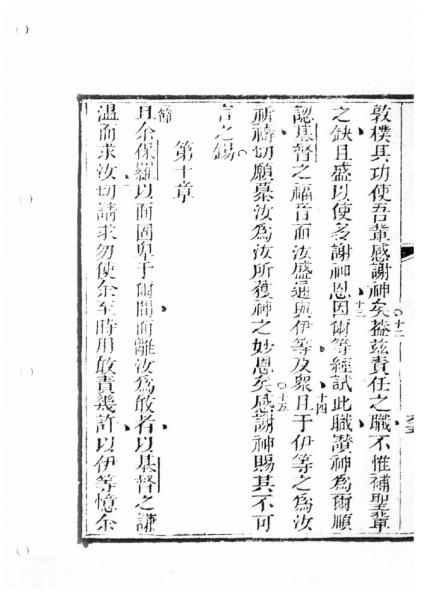 敦樸其功使吾輩感謝神矣十二葢茲責任之職不惟補聖輩
之缺且盛以使多謝神恩十三因爾等經試此職讚神爲爾順
認基督之福音而汝盛通與伊等及衆十四且于伊等之爲汝
祈禱切願慕汝爲汝所獲神之妙恩矣十五感謝神賜其不可
言之錫
第十章
節
且余保羅以面固卑于爾間而離汝爲敢者以基督之謙
溫而求汝切請求勿使余至時用敢責幾許以伊等憶余